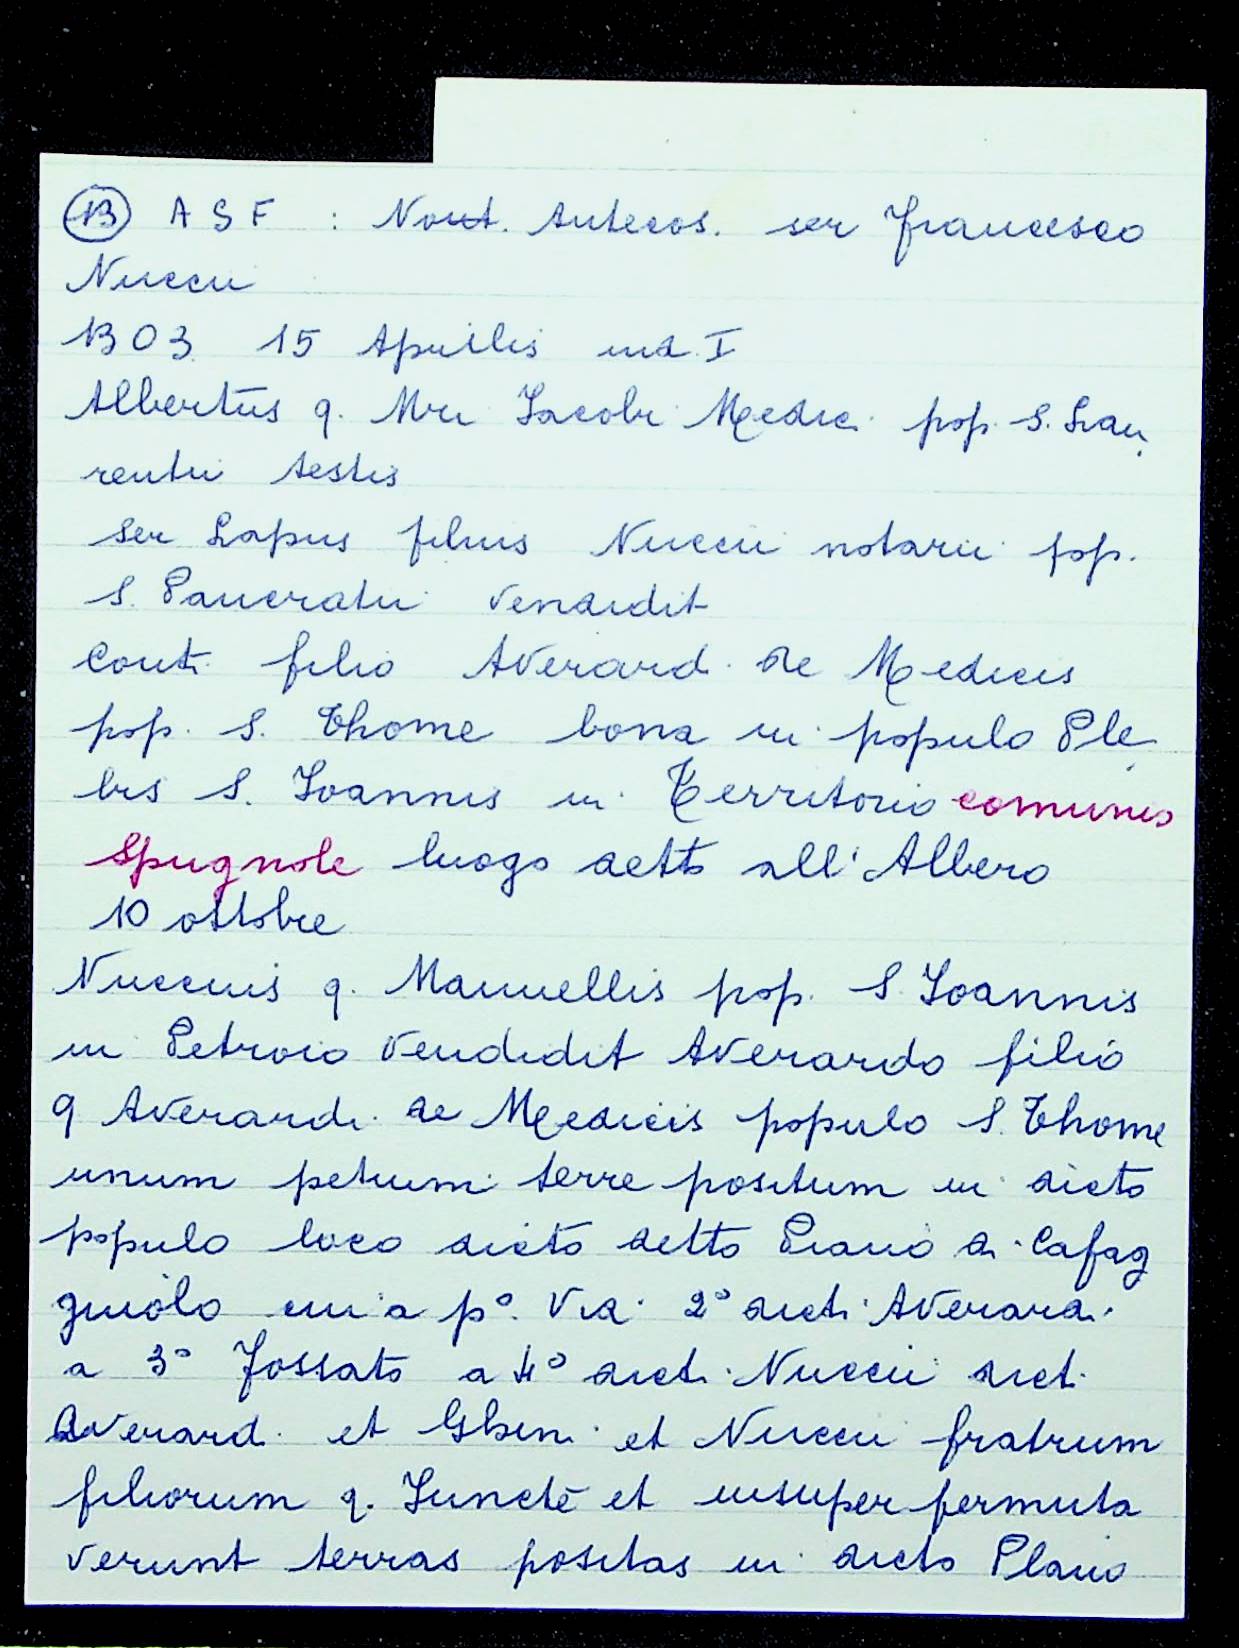 13 ASF : Not. Antecos. ser Francesco
Nuccii
1303 15 Aprilis ind. I
Albertus q. Mri Jacobi Medici pop. S. Lau,
rentii testis
Ser Lapus filius Nuccii notarii pop.
S. Pancratii vendidit
Conti filio Averardi de Medicis
pop. S. Thome bona in populo Ple,
bis S. Joannis in Territorio comunis
Spugnole luogo detto all'Albero
10 ottobre
Nuccius q. Manuellis pop. S. Joannis
in Petroio vendidit Averardo filio
q Averardi de Medicis populo S. Thome
unum petium terre positum in dicto
populo loco dicto detto Piano di Cafag
giuolo cui a p° via 2° dicti Averardi
a 3° Fossato a 4° dicti Nuccii dicti
Averardi et Ghini et Nuccii fratrum
filiorum q. Juncte et insuper permuta
verunt terras positas in dicto Plano